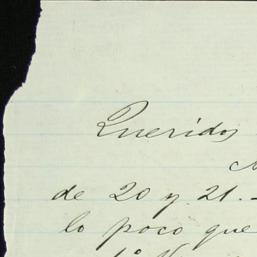 Queridos
de 20 y 21.-
lo poco que